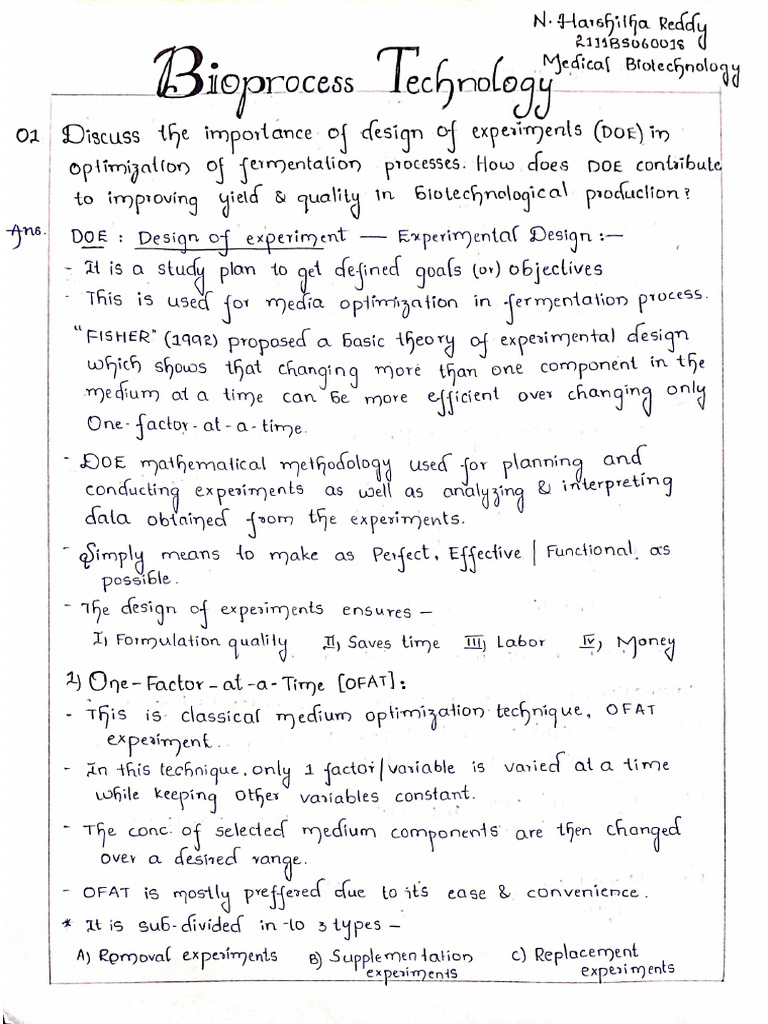 N. Harshitha Reddy
2111BS060018
Medical Biotechnology
Bioprocess Technology
01 Discuss the importance of design of experiments (DOE) in
optimization of fermentation processes. How does DOE contribute
to improving yield & quality in Biotechnological production?
Ans. DOE : Design of experiment — Experimental Design :—
- It is a study plan to get defined goals (or) objectives
- This is used for media optimization in fermentation process.
"FISHER" (1992) proposed a basic theory of experimental design
which shows that changing more than one component in the
medium at a time can be more efficient over changing only
One-factor-at-a-time.
- DOE mathematical methodology used for planning and
conducting experiments as well as analyzing & interpreting
data obtained from the experiments.
- Simply means to make as Perfect, Effective | Functional as
possible.
- The design of experiments ensures –
I) Formulation quality II) Saves time III) Labor IV) Money
1) One-Factor-at-a-Time [OFAT]:
- This is classical medium optimization technique, OFAT
experiment.
- In this technique, only 1 factor/variable is varied at a time
while keeping other variables constant.
- The conc. of selected medium components are then changed
over a desired range.
- OFAT is mostly preffered due to it's ease & convenience.
* It is sub-divided in-to 3 types –
A) Removal experiments B) Supplementation experiments C) Replacement experiments